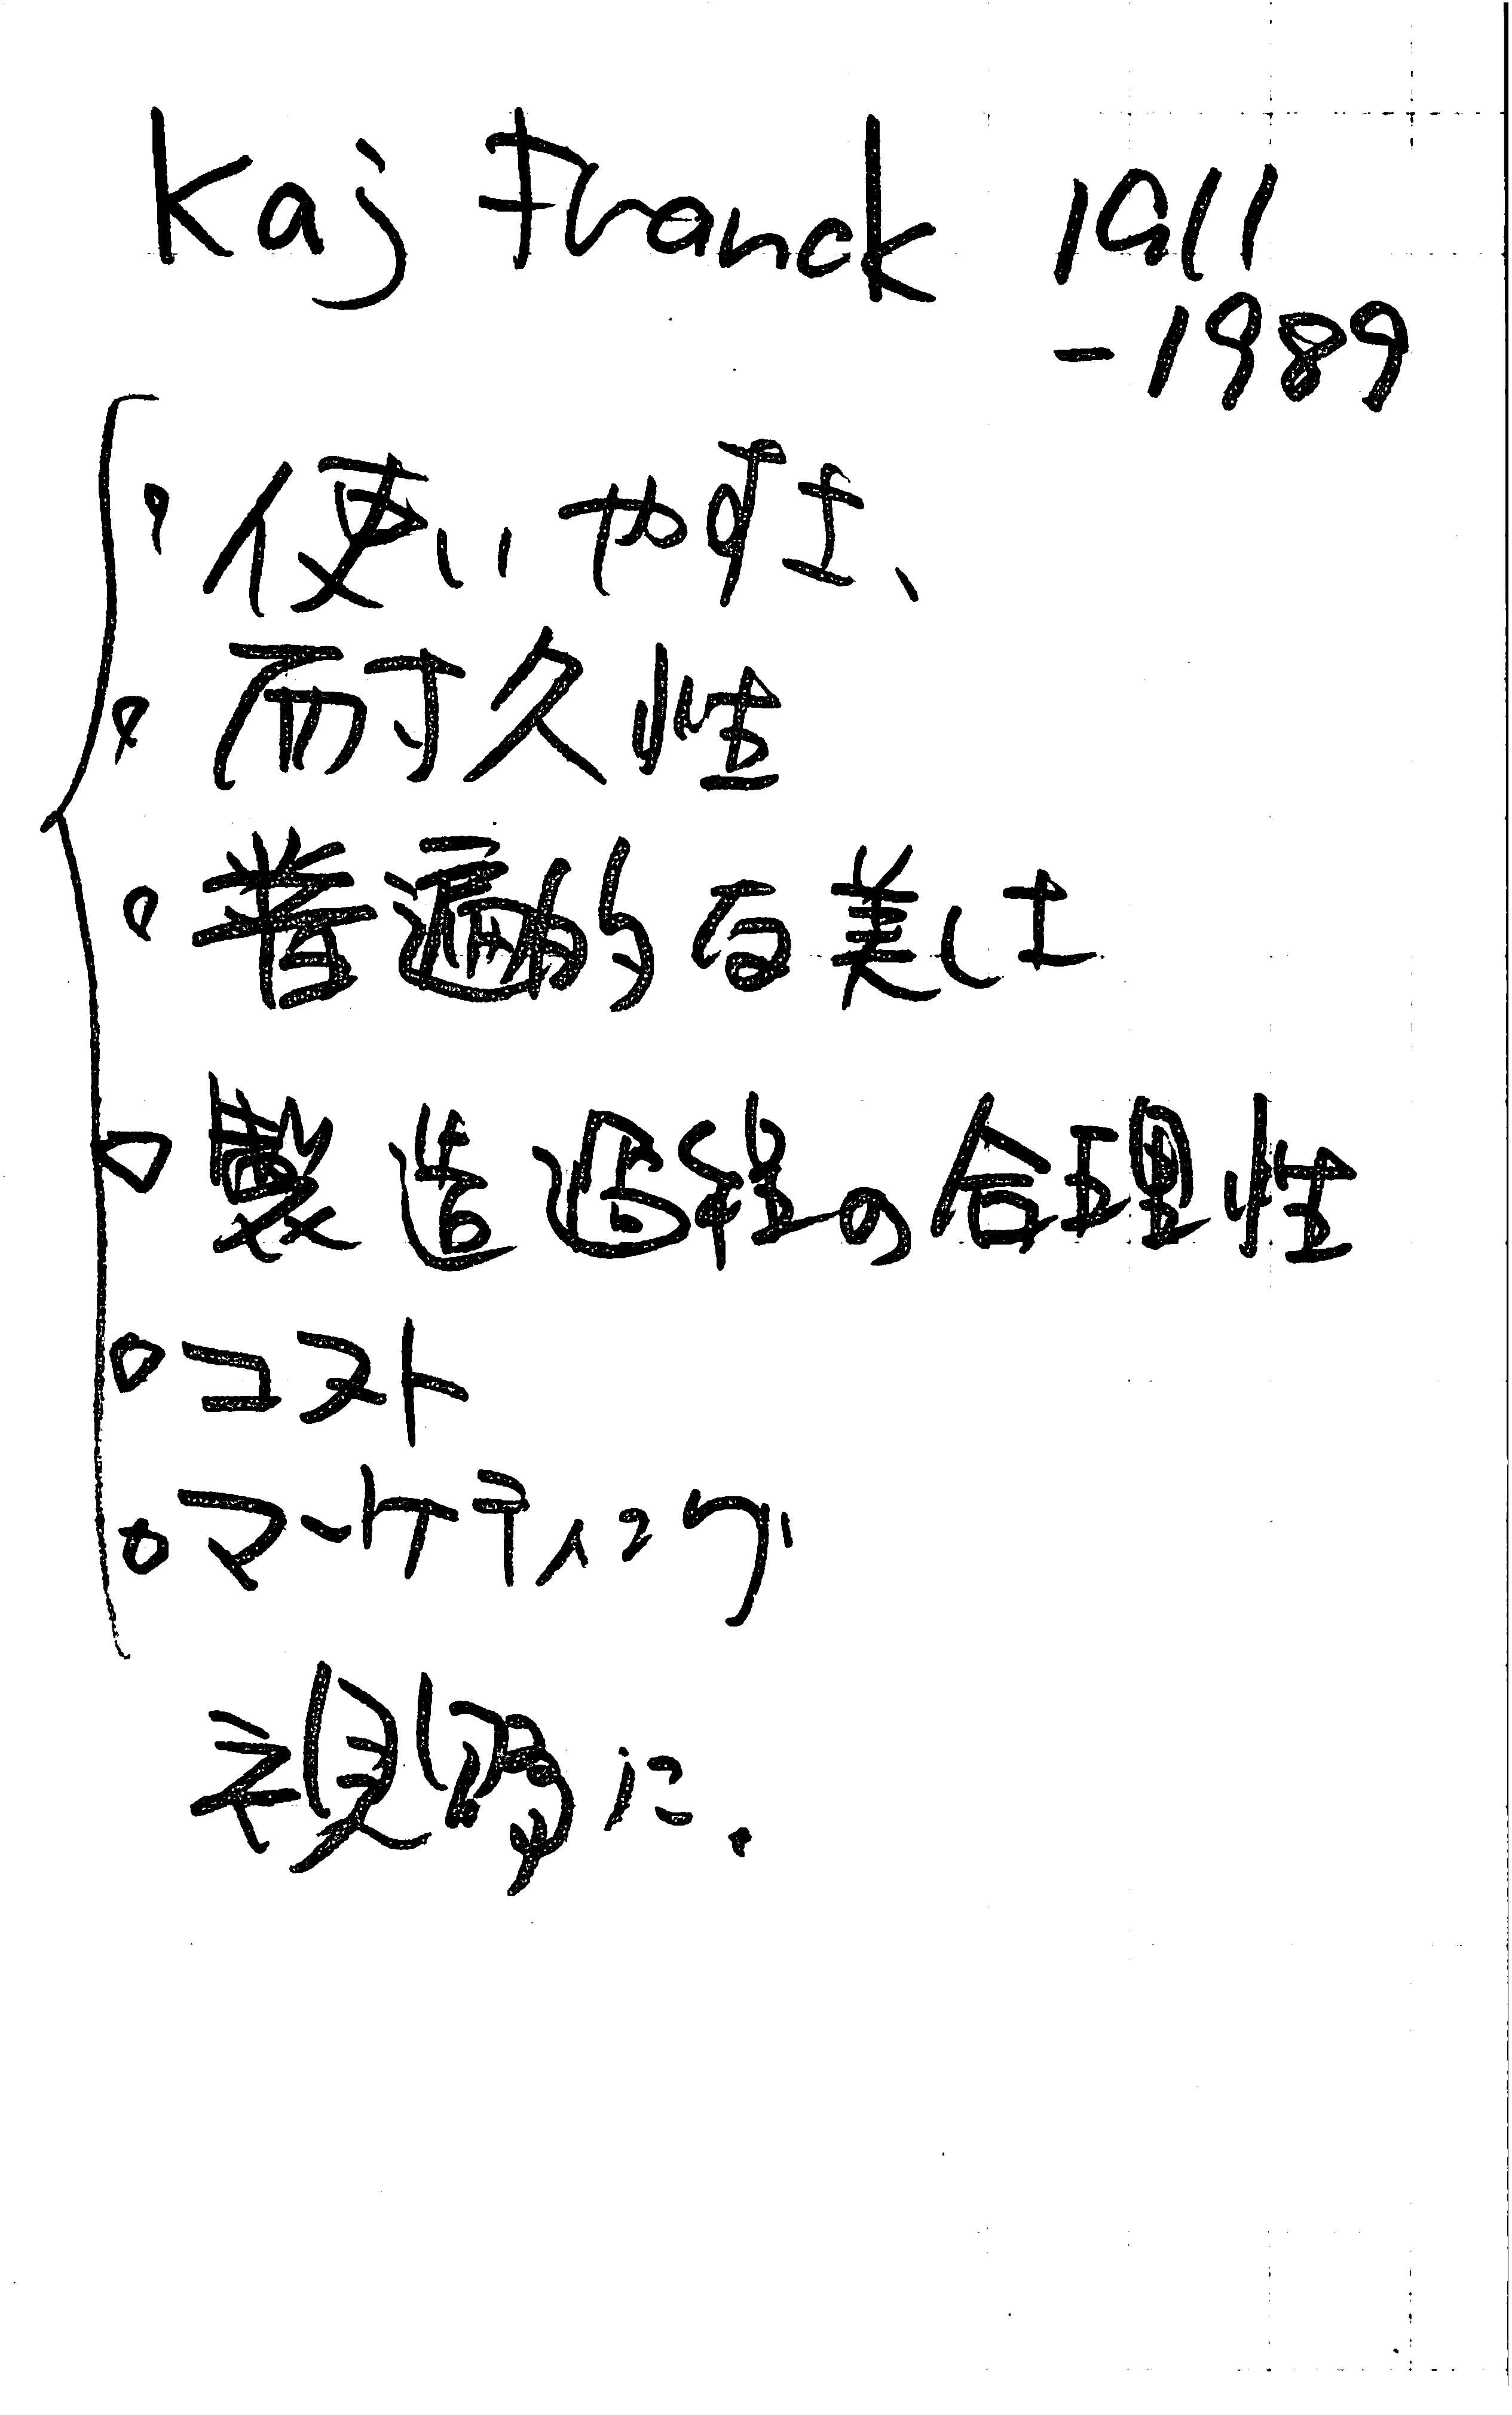 Kaj Franck 1911
-1989
・使いやすさ、
・耐久性
・普遍的な美しさ
・製造過程の合理性
・コスト
・マーケティング
視野に.